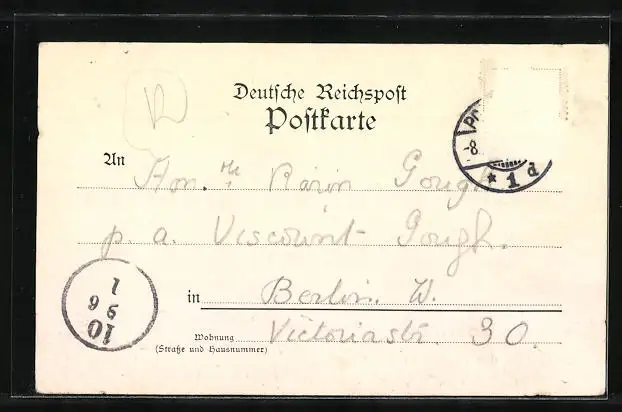 Deutsche Reichspost
Postkarte
An Hon. Gough
p. a. Viscount Gough.
in Berlin. W.
Wohnung Victoriastr. 30.
(Straße und Hausnummer)
-8.
* 1 d
1
9 6
10